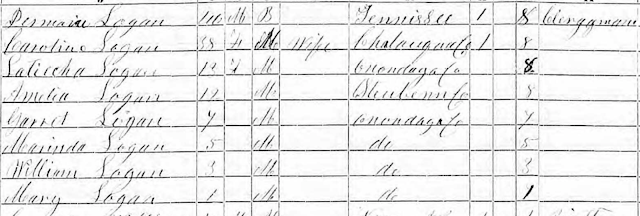 Logan 40 M B Tennissee 1 8 Clergyman
Caroline Logan 38 F M Wife 1 8
Logan F M Onondaga Co 8
Amelia Logan 12 M Steuben Co 8
Garret Logan 7 M Onondaga Co 7
Marinda Logan 5 M do 5
William Logan 3 M do 3
Mary Logan 1 M do 1